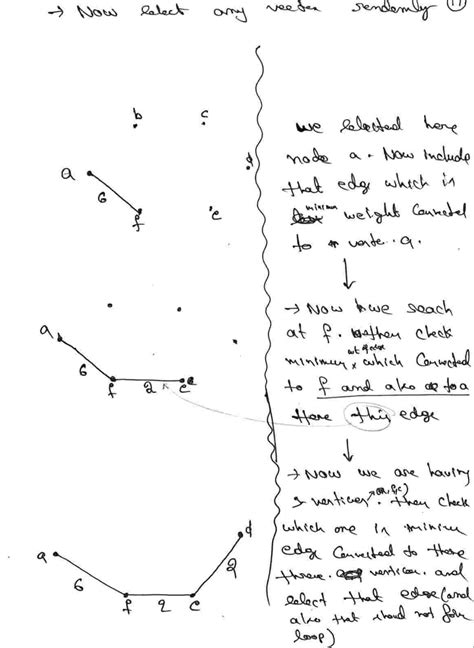 → Now select any vertex randomly (17)
b c
d
a
6
f
e
we selected here
node a. Now include
that edge which is
minimum weight connected
to vertex a.
→ Now we reach
at f. then check
minimum wt of edge which connected
to f and also to a
Here this edge
a
6
f 2 e
→ Now we are having
3 vertices (a, f, e). then check
which one is minimum
edge connected to these
three vertices. and
select that edge (and
also that should not form
loop)
a
6
f 2 e
2
d